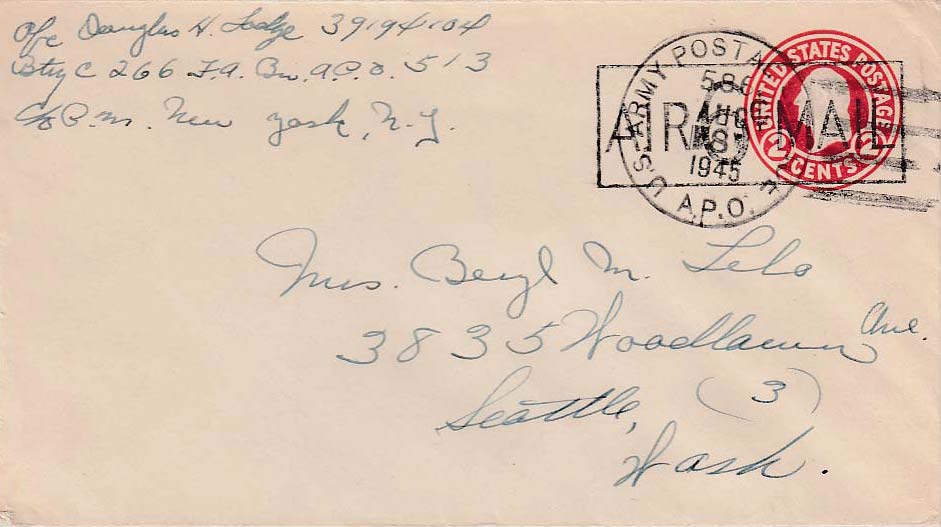 Pfc Douglas H. Lodge 39194104
Btry C 266 F.A. Bn. A.P.O. 513
c/o P.M. New York, N.Y.
U.S. ARMY POSTAL
AUG
8
1945
A.P.O.
AIR MAIL
UNITED STATES POSTAGE
2 CENTS 2
Mrs. Beryl M. Lelo
3835 Woodlawn Ave.
Seattle, (3)
Wash.